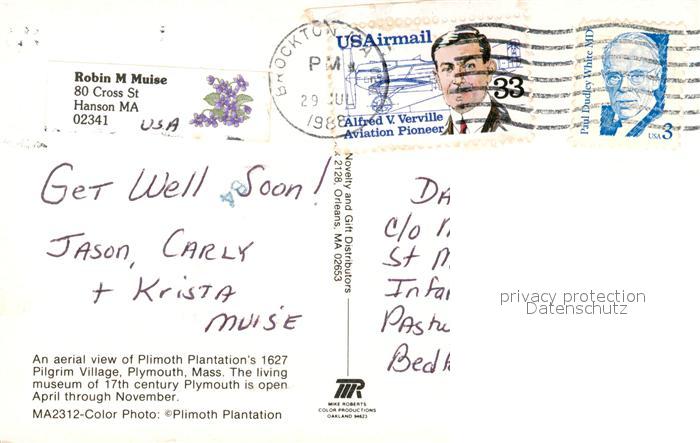 Robin M Muise
80 Cross St
Hanson MA
02341 USA
BROCKTON
PM
29 JUL
1988
USAirmail
33
Alfred V. Verville
Aviation Pioneer
Paul Dudley White MD
USA 3
Get Well Soon!
Jason, Carly
+ Krista
Muise
Novelty and Gift Distributors
2128, Orleans, MA 02653
Da
c/o
St M
Infa
Pastu
Bed
privacy protection
Datenschutz
An aerial view of Plimoth Plantation's 1627
Pilgrim Village, Plymouth, Mass. The living
museum of 17th century Plymouth is open
April through November.
MA2312-Color Photo: ©Plimoth Plantation
MIKE ROBERTS
COLOR PRODUCTIONS
OAKLAND 94623